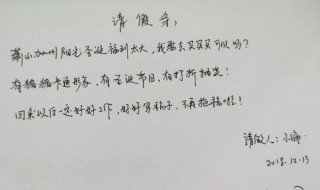 请假条
萧山加州阳光圣诞福利太大，我要去买买买可以吗？
有猪猪卡通形象，有圣诞节目，有打折抽奖！
回来以后一定好好工作，好好写稿子，不再拖稿啦！
请假人：
2018.12.13